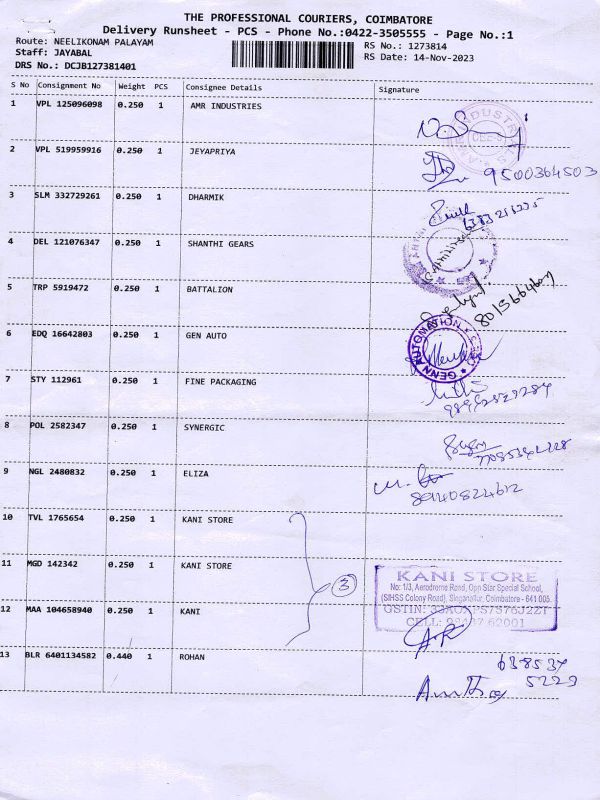 THE PROFESSIONAL COURIERS, COIMBATORE
Delivery Runsheet - PCS - Phone No.:0422-3505555 - Page No.:1
Route: NEELIKONAM PALAYAM
RS No.: 1273814
Staff: JAYABAL
RS Date: 14-Nov-2023
DRS No.: DCJB127381401
S No Consignment No Weight PCS Consignee Details Signature
1 VPL 125096098 0.250 1 AMR INDUSTRIES
2 VPL 519959916 0.250 1 JEYAPRIYA
9500364503
3 SLM 332729261 0.250 1 DHARMIK
4 DEL 121076347 0.250 1 SHANTHI GEARS
5 TRP 5919472 0.250 1 BATTALION
6 EDQ 16642803 0.250 1 GEN AUTO
GENN AUTOMATION
7 STY 112961 0.250 1 FINE PACKAGING
8 POL 2582347 0.250 1 SYNERGIC
9 NGL 2480832 0.250 1 ELIZA
10 TVL 1765654 0.250 1 KANI STORE
11 MGD 142342 0.250 1 KANI STORE
3
KANI STORE
No: 1/3, Aerodrome Road, Opp Star Special School,
(SIHSS Colony Road), Singanallur, Coimbatore - 641 005.
12 MAA 104658940 0.250 1 KANI
13 BLR 6401134582 0.440 1 ROHAN
638537
5229